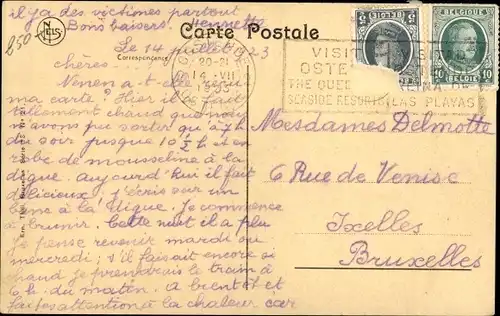 il y a des victimes partout
Bons baisers. Henriette
850
NELS
Carte Postale
Correspondance
Le 14 juillet 23
chères
Ninen a-t-elle reçu
ma carte? Hier il fai
tellement chaud que nous
n'avons pu sortir qu'à 7h
du soir jusque 10 ½ h et en
robe de mousseline à la
digue. aujourd'hui il fait
délicieux. j'écris sur un
banc à la digue. Je commence
à brunir. Cette nuit il a plu
Je pense revenir mardi ou
mercredi; s'il faisait encore si
chaud je prendrais le train à
6 h. du matin. a bientôt et
faites attention à la chaleur car
20-21
14 VII
VISIT
OSTE
THE QUEE
SEASIDE RESORTS
LAS PLAYAS
BELGIQUE
10 BELGIE 10
Mesdames Delmotte
6 Rue de Venise
Ixelles
Bruxelles